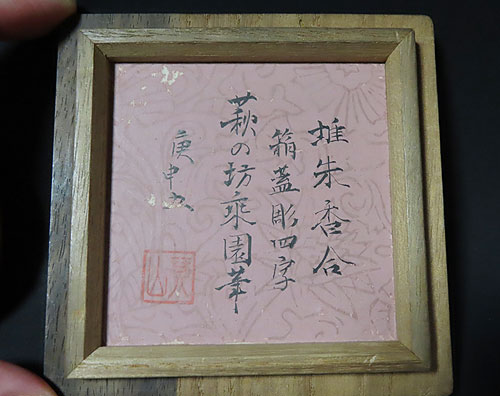 堆朱香合
箱蓋彫四字
萩の坊乗園筆
庚申秋